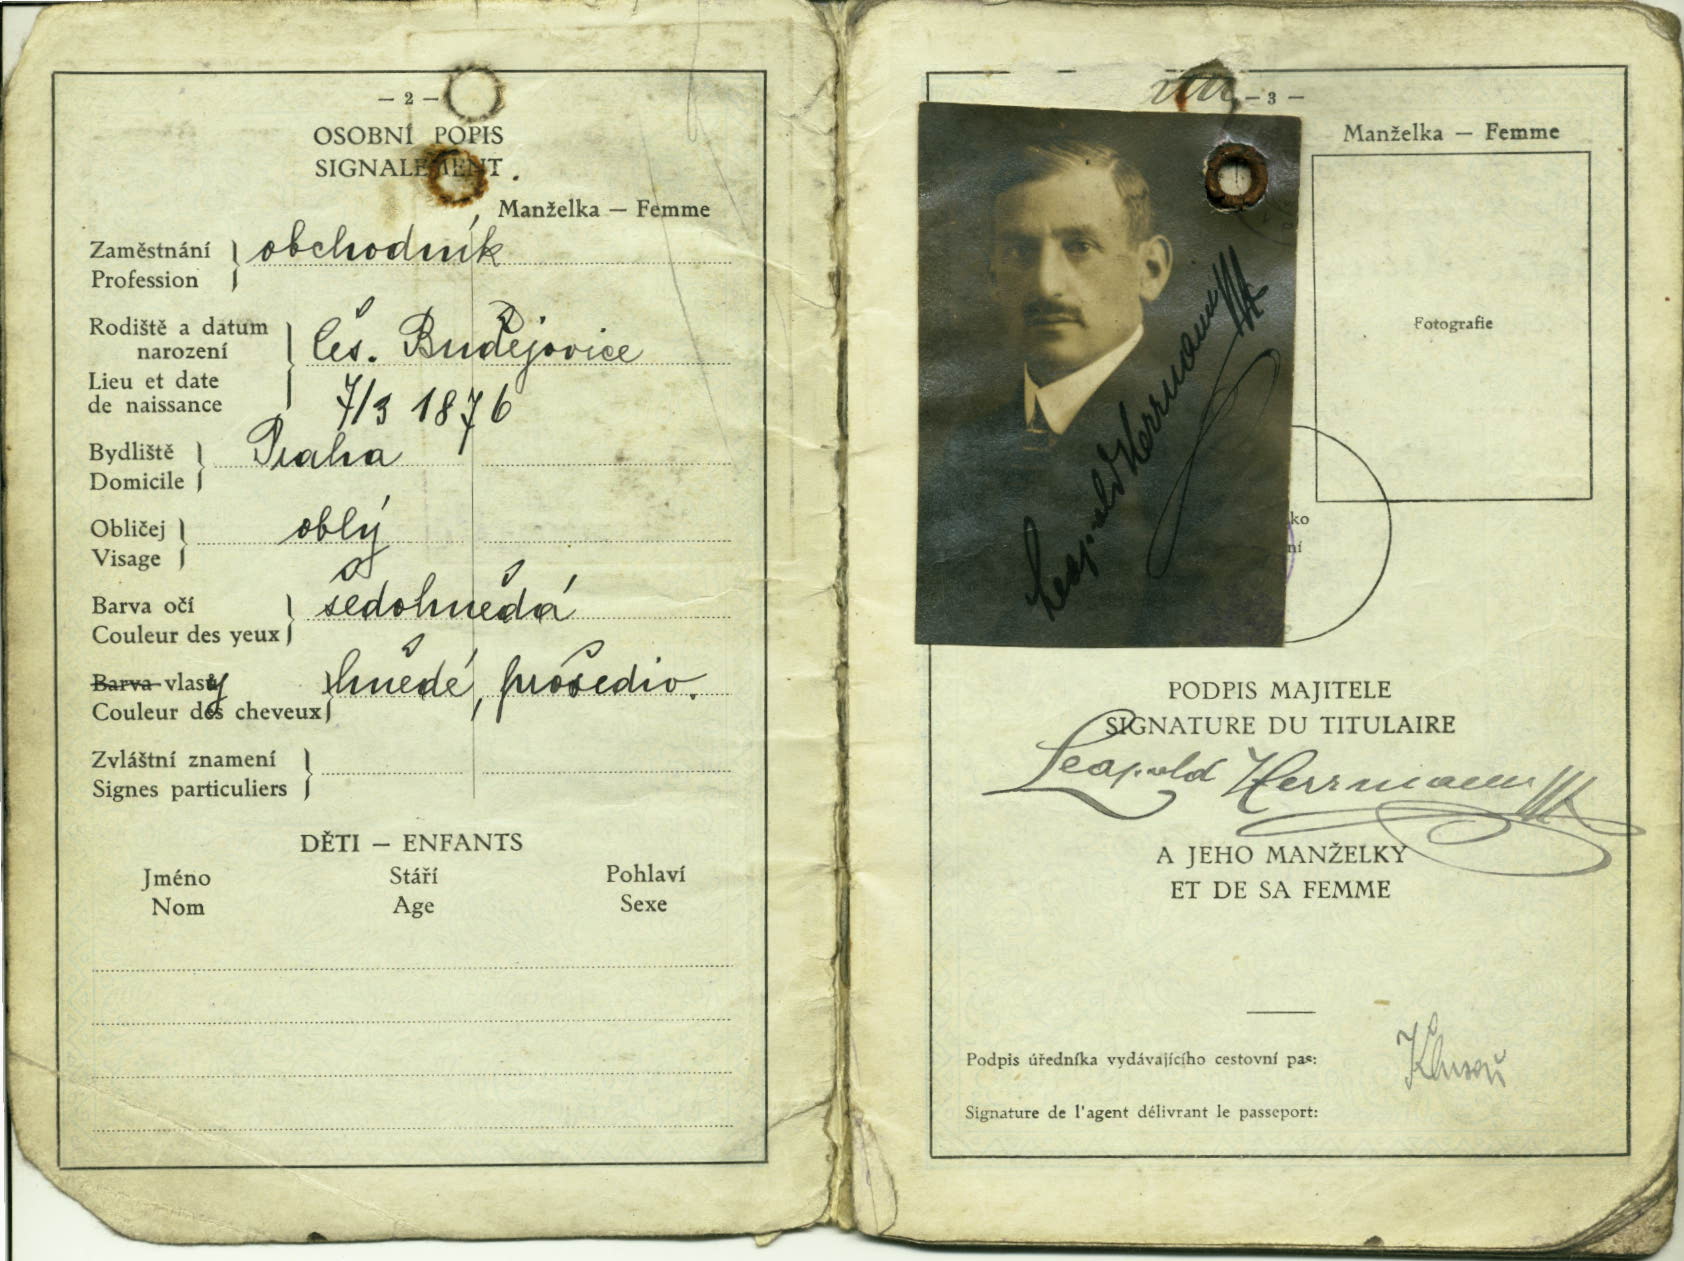 — 2 —
OSOBNÍ POPIS
SIGNALEMENT
Manželka — Femme
Zaměstnání
Profession
obchodník
Rodiště a datum
narození
Lieu et date
de naissance
Čes. Budějovice
7/3 1876
Bydliště
Domicile
Praha
Obličej
Visage
oblý
Barva očí
Couleur des yeux
šedohnědá
Barva vlasy
Couleur des cheveux
hnědé, prošediv.
Zvláštní znamení
Signes particuliers
DĚTI — ENFANTS
Jméno Stáří Pohlaví
Nom Age Sexe
— 3 —
Manželka — Femme
Leopold Herrmann
Fotografie
ko
ní
PODPIS MAJITELE
SIGNATURE DU TITULAIRE
Leopold Herrmann
A JEHO MANŽELKY
ET DE SA FEMME
Podpis úředníka vydávajícího cestovní pas:
Signature de l'agent délivrant le passeport: